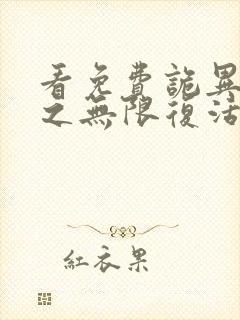 看免費詭異
之無限復活
紅衣果